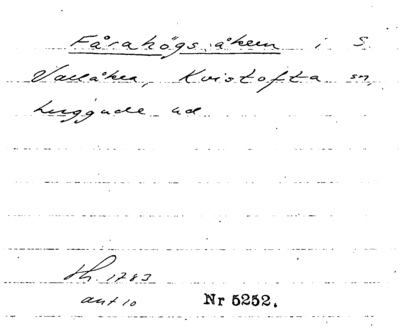 Fårahögsåkern i S.
Vallåkra, Kvistofta sn,
Luggude hd
Sk. 1783
akt 10
Nr 5252.